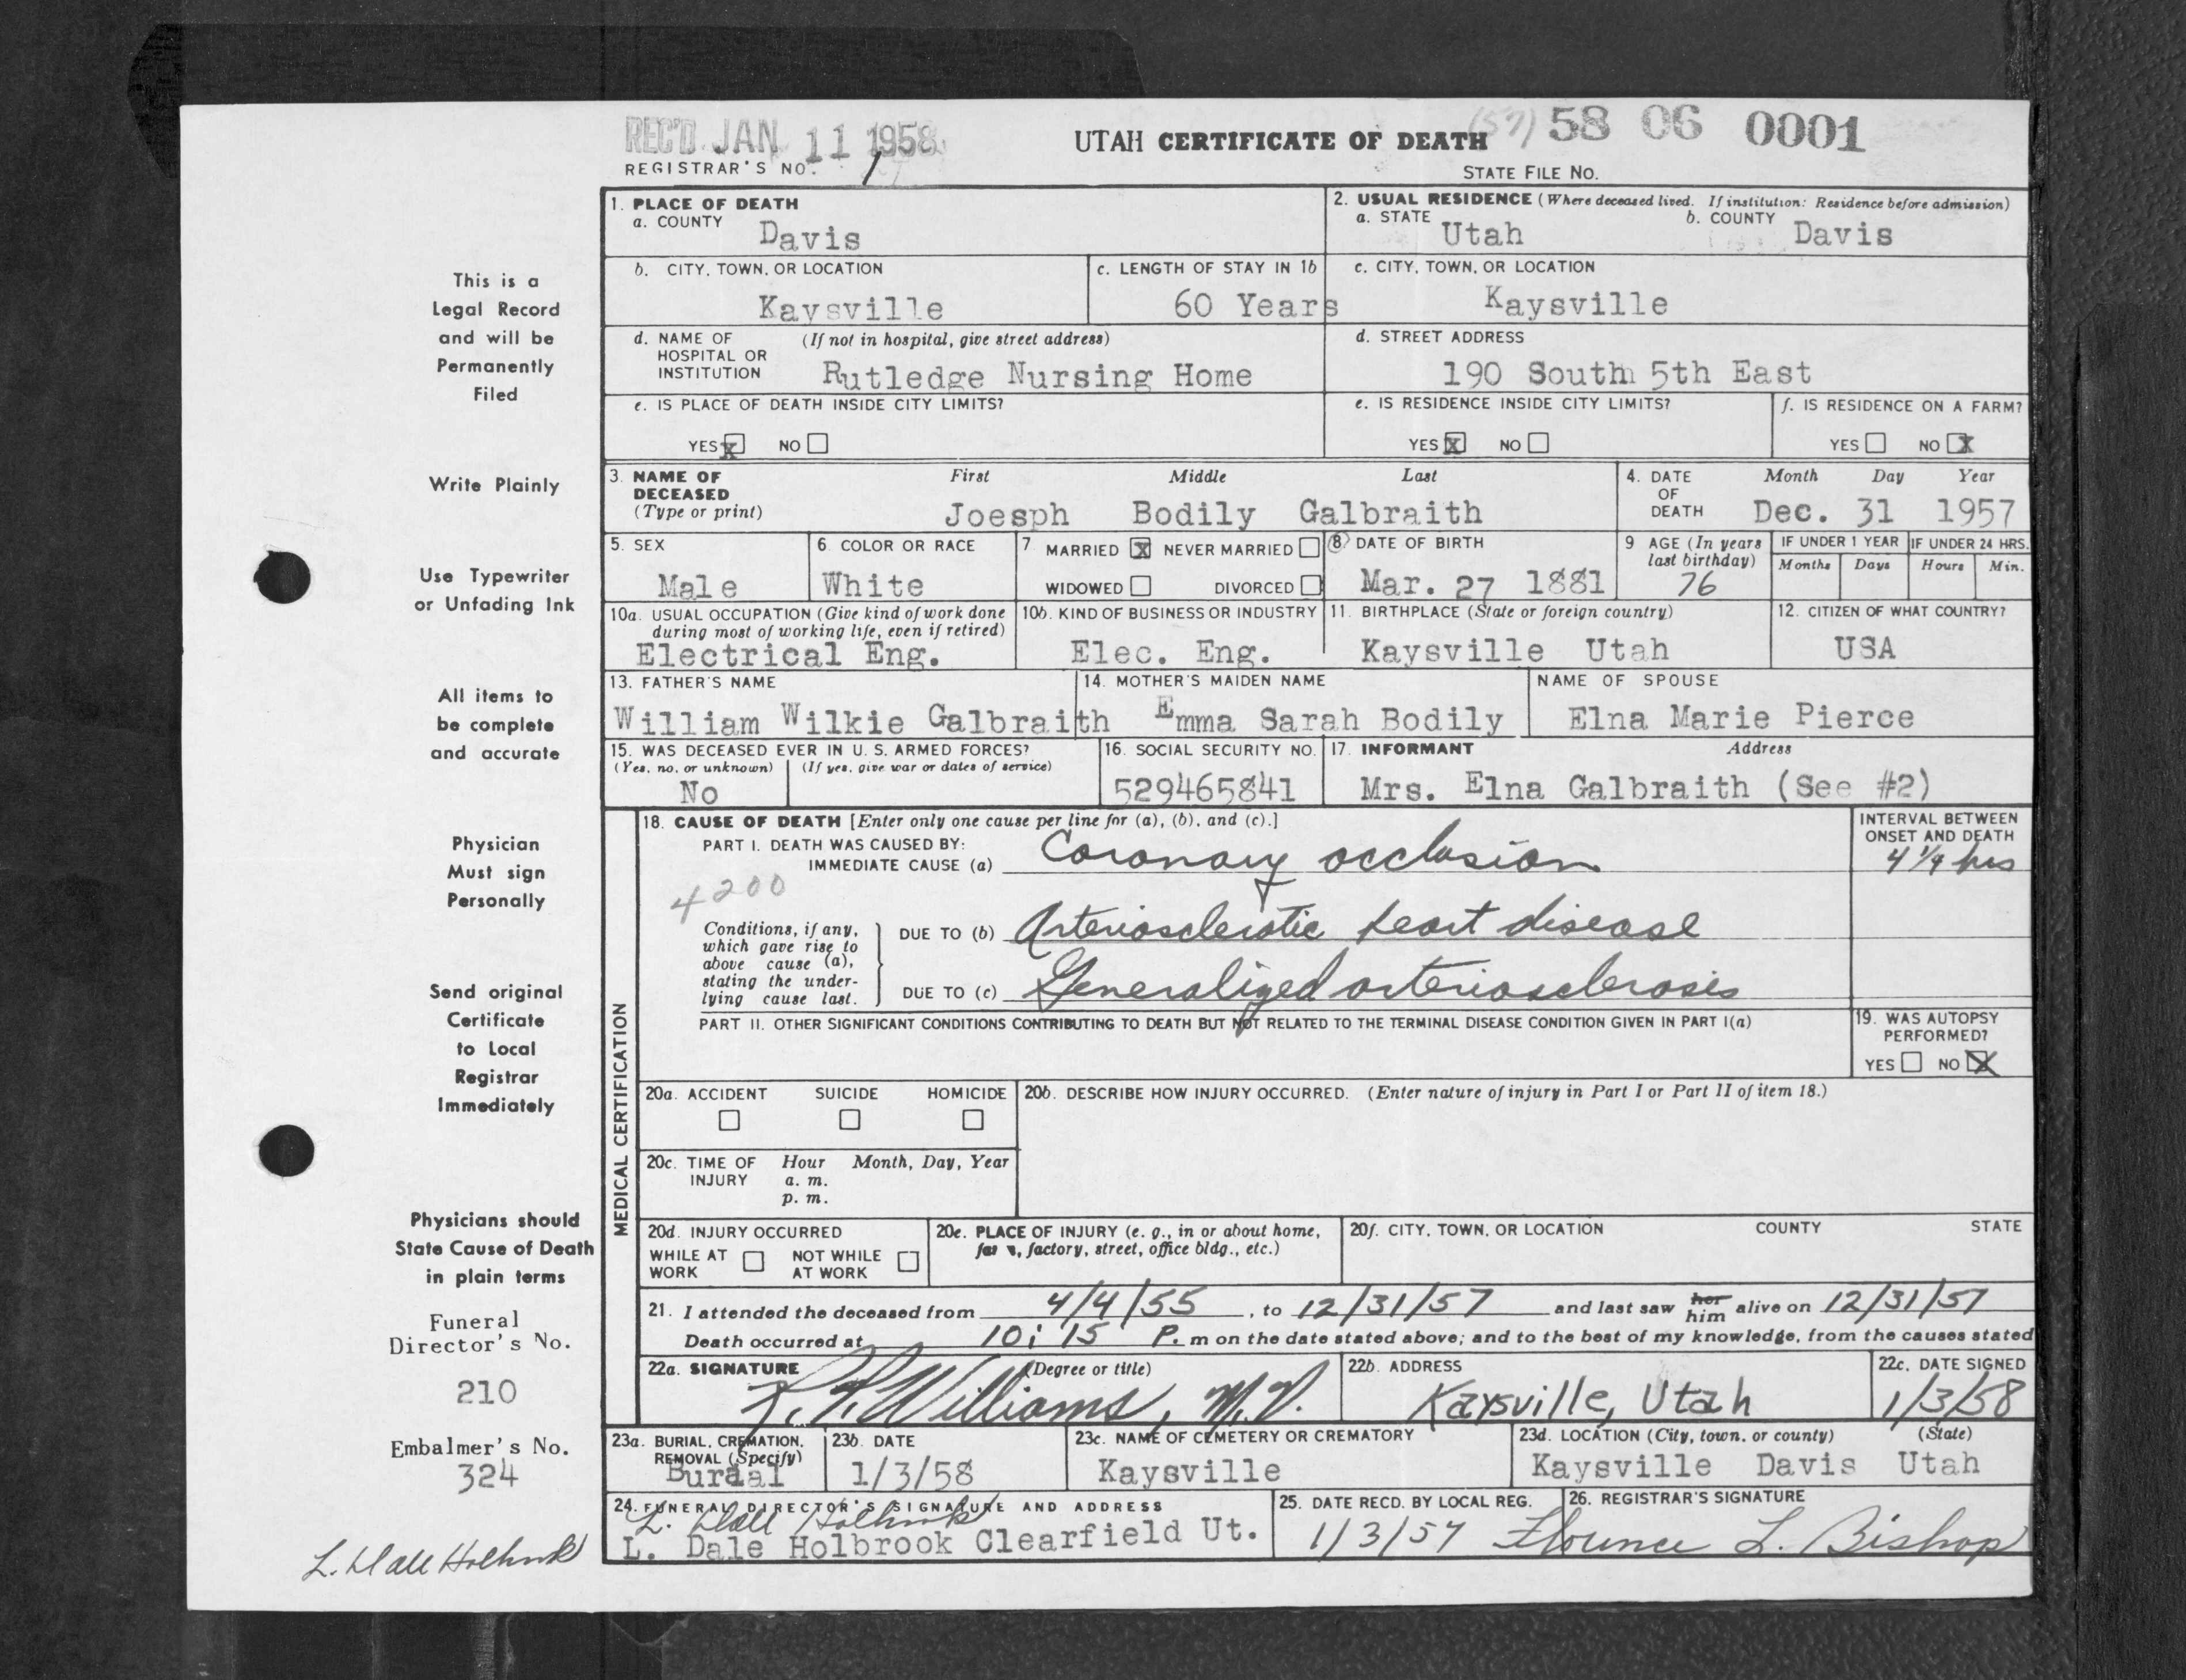 REC'D JAN 11 1958
UTAH CERTIFICATE OF DEATH (57) 58 06 0001
REGISTRAR'S NO. 1
STATE FILE NO.
1. PLACE OF DEATH
a. COUNTY
Davis
2. USUAL RESIDENCE (Where deceased lived. If institution: Residence before admission)
a. STATE b. COUNTY
Utah Davis
b. CITY, TOWN, OR LOCATION
Kaysville
c. LENGTH OF STAY IN 1b
60 Years
c. CITY, TOWN, OR LOCATION
Kaysville
d. NAME OF (If not in hospital, give street address)
HOSPITAL OR
INSTITUTION Rutledge Nursing Home
d. STREET ADDRESS
190 South 5th East
e. IS PLACE OF DEATH INSIDE CITY LIMITS?
YES X NO
e. IS RESIDENCE INSIDE CITY LIMITS?
YES X NO
f. IS RESIDENCE ON A FARM?
YES NO X
3. NAME OF First Middle Last
DECEASED
(Type or print) Joesph Bodily Galbraith
4. DATE Month Day Year
OF
DEATH Dec. 31 1957
5. SEX
Male
6. COLOR OR RACE
White
7. MARRIED X NEVER MARRIED
WIDOWED DIVORCED
8. DATE OF BIRTH
Mar. 27 1881
9. AGE (In years
last birthday)
76
IF UNDER 1 YEAR IF UNDER 24 HRS.
Months Days Hours Min.
10a. USUAL OCCUPATION (Give kind of work done
during most of working life, even if retired)
Electrical Eng.
10b. KIND OF BUSINESS OR INDUSTRY
Elec. Eng.
11. BIRTHPLACE (State or foreign country)
Kaysville Utah
12. CITIZEN OF WHAT COUNTRY?
USA
13. FATHER'S NAME
William Wilkie Galbraith
14. MOTHER'S MAIDEN NAME
Emma Sarah Bodily
NAME OF SPOUSE
Elna Marie Pierce
15. WAS DECEASED EVER IN U. S. ARMED FORCES?
(Yes, no, or unknown) (If yes, give war or dates of service)
No
16. SOCIAL SECURITY NO.
529465841
17. INFORMANT Address
Mrs. Elna Galbraith (See #2)
MEDICAL CERTIFICATION
18. CAUSE OF DEATH [Enter only one cause per line for (a), (b), and (c).]
PART I. DEATH WAS CAUSED BY:
IMMEDIATE CAUSE (a) Coronary occlusion
INTERVAL BETWEEN
ONSET AND DEATH
4 1/4 hrs
4200
Conditions, if any,
which gave rise to
above cause (a),
stating the under-
lying cause last.
DUE TO (b) Arteriosclerotic heart disease
DUE TO (c) Generalized arteriosclerosis
PART II. OTHER SIGNIFICANT CONDITIONS CONTRIBUTING TO DEATH BUT NOT RELATED TO THE TERMINAL DISEASE CONDITION GIVEN IN PART I(a)
19. WAS AUTOPSY
PERFORMED?
YES NO X
20a. ACCIDENT SUICIDE HOMICIDE
20b. DESCRIBE HOW INJURY OCCURRED. (Enter nature of injury in Part I or Part II of item 18.)
20c. TIME OF Hour Month, Day, Year
INJURY a. m.
p. m.
20d. INJURY OCCURRED
WHILE AT NOT WHILE
WORK AT WORK
20e. PLACE OF INJURY (e. g., in or about home,
factory, street, office bldg., etc.)
20f. CITY, TOWN, OR LOCATION COUNTY STATE
21. I attended the deceased from 4/4/55, to 12/31/57 and last saw her him alive on 12/31/57
Death occurred at 10:15 P. m on the date stated above; and to the best of my knowledge, from the causes stated
22a. SIGNATURE (Degree or title)
Williams, M.D.
22b. ADDRESS
Kaysville, Utah
22c. DATE SIGNED
1/3/58
23a. BURIAL, CREMATION,
REMOVAL (Specify)
Burial
23b. DATE
1/3/58
23c. NAME OF CEMETERY OR CREMATORY
Kaysville
23d. LOCATION (City, town, or county) (State)
Kaysville Davis Utah
24. FUNERAL DIRECTOR'S SIGNATURE AND ADDRESS
L. Dale Holbrook
L. Dale Holbrook Clearfield Ut.
25. DATE RECD. BY LOCAL REG.
1/3/57
26. REGISTRAR'S SIGNATURE
Florence L. Bishop
This is a
Legal Record
and will be
Permanently
Filed
Write Plainly
Use Typewriter
or Unfading Ink
All items to
be complete
and accurate
Physician
Must sign
Personally
Send original
Certificate
to Local
Registrar
Immediately
Physicians should
State Cause of Death
in plain terms
Funeral
Director's No.
210
Embalmer's No.
324
L. Dale Holbrook